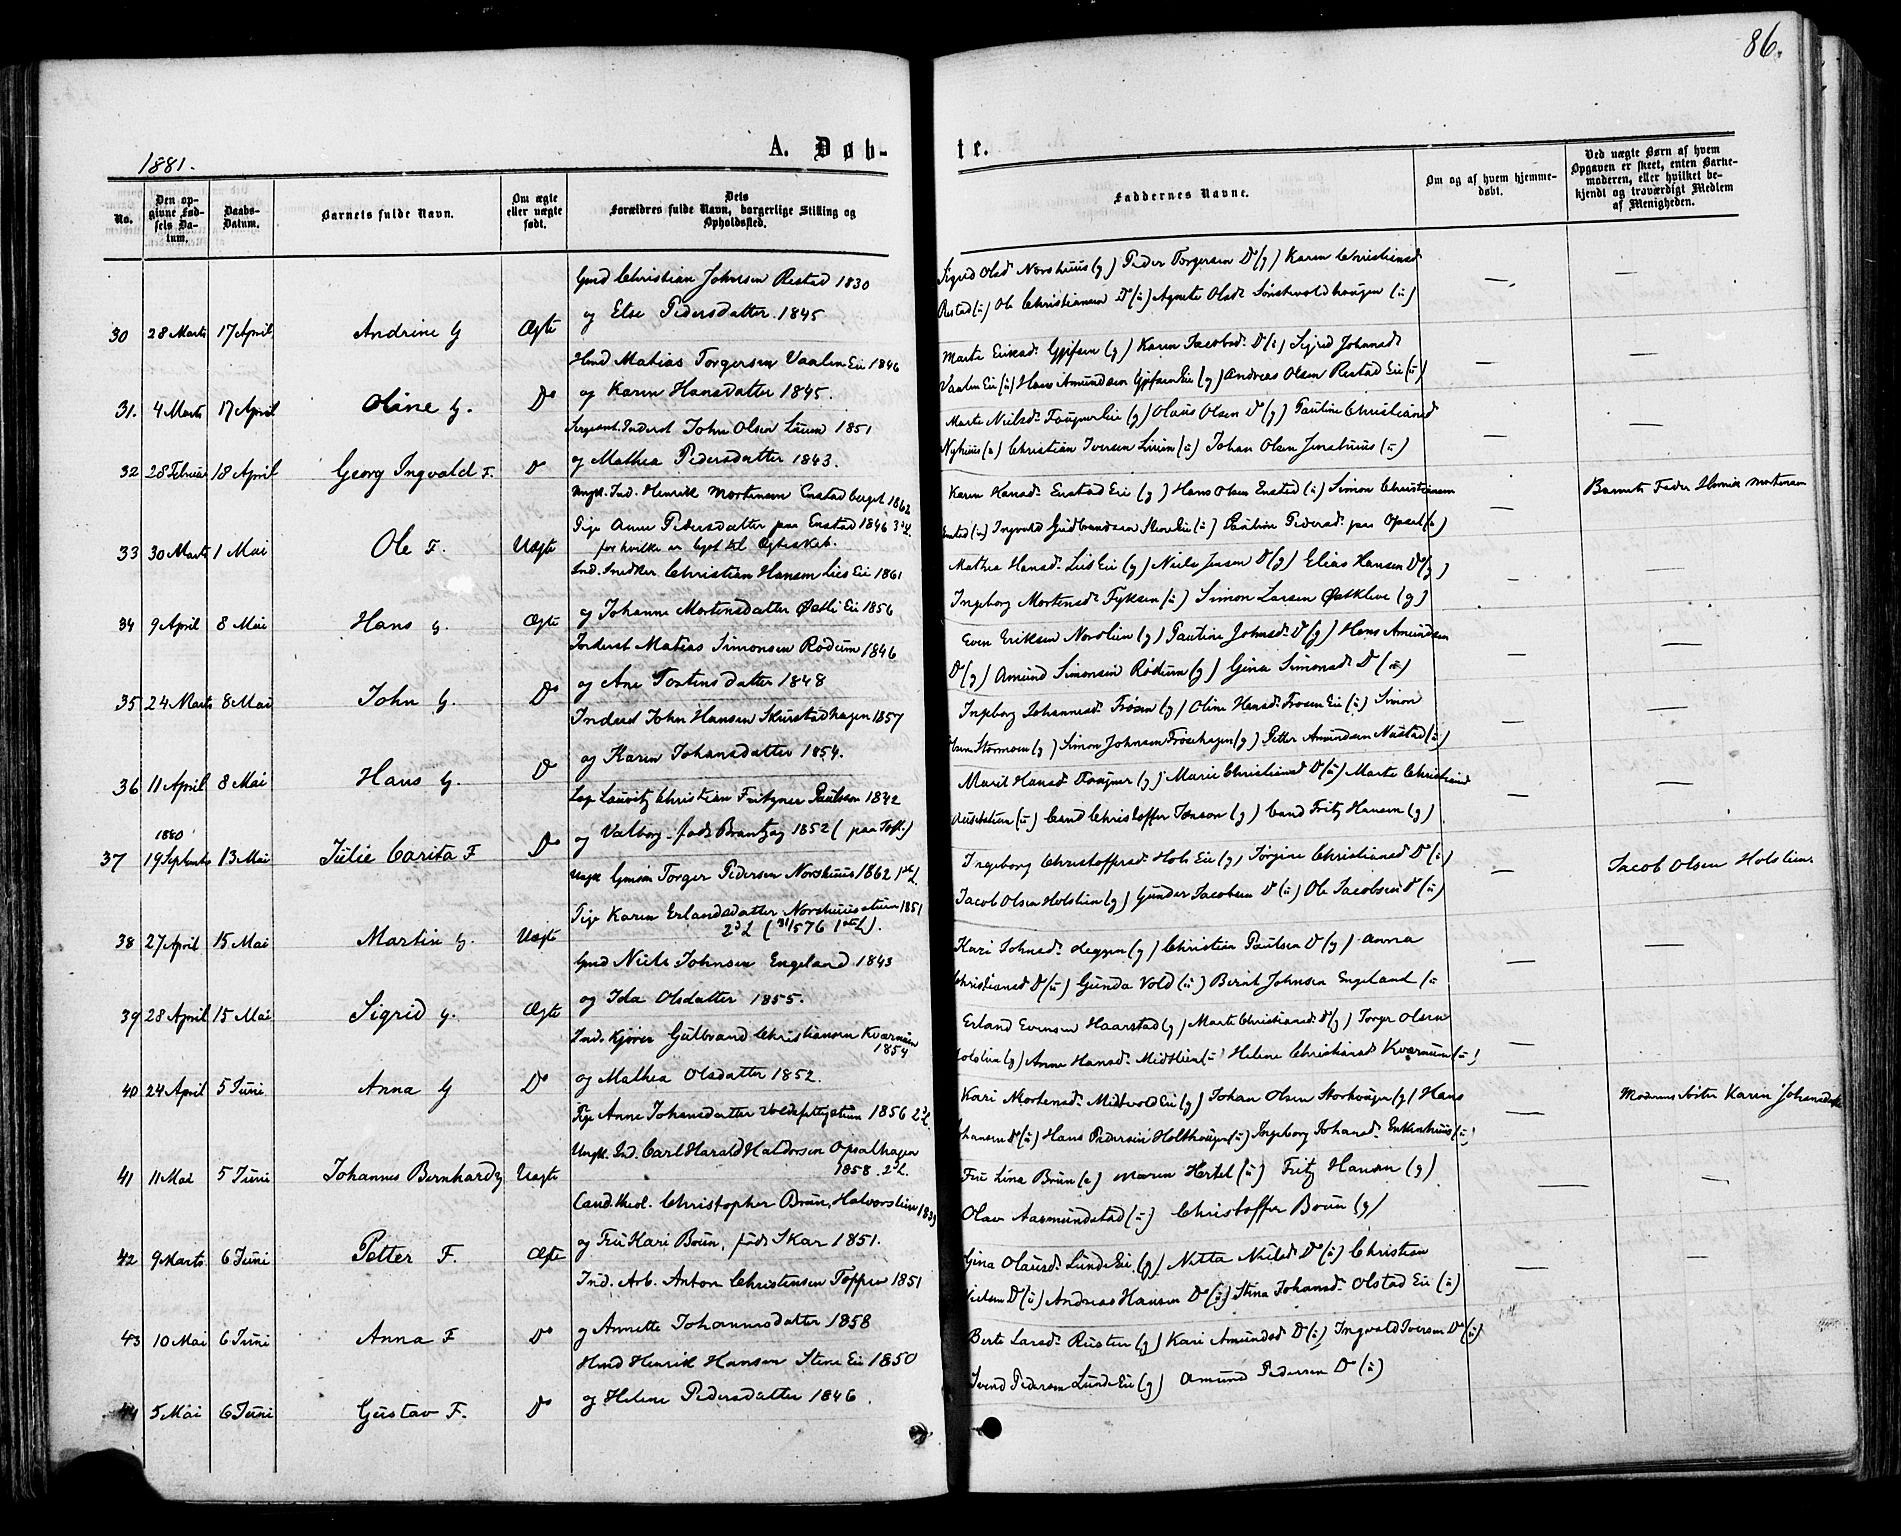 86.
1881.
A. Døb-
te.
No.
Den op-
givne Fød-
sels Da-
tum.
Daabs-
Datum.
Barnets fulde Navn.
Om ægte
eller uægte
født.
Dets
Forældres fulde Navn, borgerlige Stilling og
Opholdssted.
Faddernes Navne.
Om og af hvem hjemme-
døbt.
Ved uægte Børn af hvem
Opgaven er skeet, enten Barne-
moderen, eller hvilket be-
kjendt og troværdigt Medlem
af Menigheden.
Gmd Christian Johnsen Restad 1830
og Else Pedersdatter 1845
30 28 Marts 17 April Andrine G Ægte
Sigrid Olsd Norshuus (g) Peder Torgersen Do (g) Karen Christiansd
Restad (u) Ole Christiansen Do (u) Agnete Olsd
Hmd Matias Torgersen Vaalen Eie 1846
og Karen Hansdatter 1845.
31. 4 Marts 17 April Oline G. Do
Marte Eriksd. (g) Karen Jacobsd. Do (u) Sigrid Johansd
Vaalen Eie (u) Hans Amundsen (g) Andreas Olsen Restad Eie (u)
Sergeant. Inderst John Olsen 1851
og Mathea Pedersdatter 1843.
32 28 Februar 18 April Georg Ingvald F. Do
Marte Nielsd. (g) Olaus Olsen Do (g) Pauline Christiansd
Nyhuus (u) Christian Iversen (u) Johan Olsen (u)
Ungk. Ind. Henrik Mortensen Enstadberget 1862
Pige Anne Pedersdatter paa Enstad 1846
for hvilke er lyst til Ægteskab.
33 30 Marts 1 Mai Ole F. Uægte
Karen Hansd. Enstad Eie (g) Hans Olsen Enstad (u) Simon Christiansen
Enstad (u) Ingvald Gudbrandsen (u) Pauline Pedersd. paa Opsal (u)
Barnets Fader Henrik Mortensen
Ind. Snedker Christian Hansen Lies Eie 1861
og Johanne Mortensdatter Eie 1856
34 9 April 8 Mai Hans G. Ægte
Mathea Hansd. Lies Eie (g) Niels Jensen Do (g) Elias Hansen Do (g)
Ingeborg Mortensd. (u) Simon Larsen (g)
Inderst Matias Simonsen Rødum 1846
og Ane 1848
35 24 Marts 8 Mai John G. Do
Even Eriksen Nordlien (g) Pauline Johnsd. Do (g) Hans Amundsen
Do (g) Amund Simonsen Rødum (g) Gina Simonsd. Do (u)
Inderst John Hansen Skurstadhagen 1857
og Karen Johansdatter 1854.
36 11 April 8 Mai Hans G. Do
Ingeborg Johannesd. Frøsen (g) Oline Hansd. Frøsen Eie (u) Simon
(g) Simon Johnsen Frøsehagen (g) Petter Amundsen Nustad (u)
Christian Fritzner Paulson 1842
og Valborg født 1852 (paa )
1880
37 19 September 13 Mai Julie Carita F Do
Marit Hansd. (g) Marie Christiansd Do (u) Marte Christiansd
(u) Cand Christoffer Janson (g) Cand Fritz Hansen (g)
Ungk Torger Pedersen Norshuus 1862
Pige Karen Erlandsdatter 1851
38 27 April 15 Mai Martin G. Uægte
Ingeborg Eie (g) Jørgine Christiansd Do (u)
Jacob Olsen Holslien (g) Gunder Jacobsen Do (u) Ole Jacobsen Do (u)
Jacob Olsen Holslien
Gmd Niels Johnsen Engeland 1843
og Ida Olsdatter 1855.
39 28 April 15 Mai Sigrid G. Ægte
Kari Johnsd. (g) Christian Paulsen Do (g) Anna
Christiansd Do (u) Gunda Vold (u) Bernt Johnsen Engeland (u
Ind. Kjører Gulbrand Christiansen Kværnum
1854
og Mathea Olsdatter 1852.
40 24 April 5 Juni Anna G Do
Erland Evensen Haarstad (g) Marte Christiansd. Do (g) Torger Olsen
Holslien (g) Anne Hansd. Midtlien (u) Helene Christiansd Kværnum (u)
Pige Anne Johansdatter 1856
Ungk. Ind. Carl Harald Haldorsen Opsalhagen
1858.
41 11 Mai 5 Juni Johannes Bernhard G Uægte
Kari Mortensd. Eie (g) Johan Olsen (g) Hans
Johansen Do (u) Hans Pedersen Holthaugen (u) Ingeborg Johansd. (u)
Moderens Søster Karen Johansdatter
Cand. theol. Christopher Bruun, Halvorslien 1839
og Fru Kari Bruun, født Skar 1851.
42 9 Marts 6 Juni Petter F. Ægte
Fru Lina Bruun (u) Maren Hertel (u) Fritz Hansen (g)
Olav Aasmundstad (u) Christoffer Bruun (g)
Ind. Arb. Anton Christensen 1851
og Annette Johannesdatter 1858
43 10 Mai 6 Juni Anna F Do
Gina Olausd. Lunde Eie (g) Nielsd Do (u) Christian
Nielsen Do (u) Andreas Hansen Do (g) Stina Johansd. Olstad Eie (u)
Hmd Henrik Hansen Stene Eie 1850
og Helene Pedersdatter 1846.
44 5 Mai 6 Juni Gustav F. Do
Berte Larsd. Rusten (g) Kari Amundsd Do (u) Ingvald Iversen Do (u)
Svend Pedersen Lunde Eie (g) Amund Pedersen Do (u)